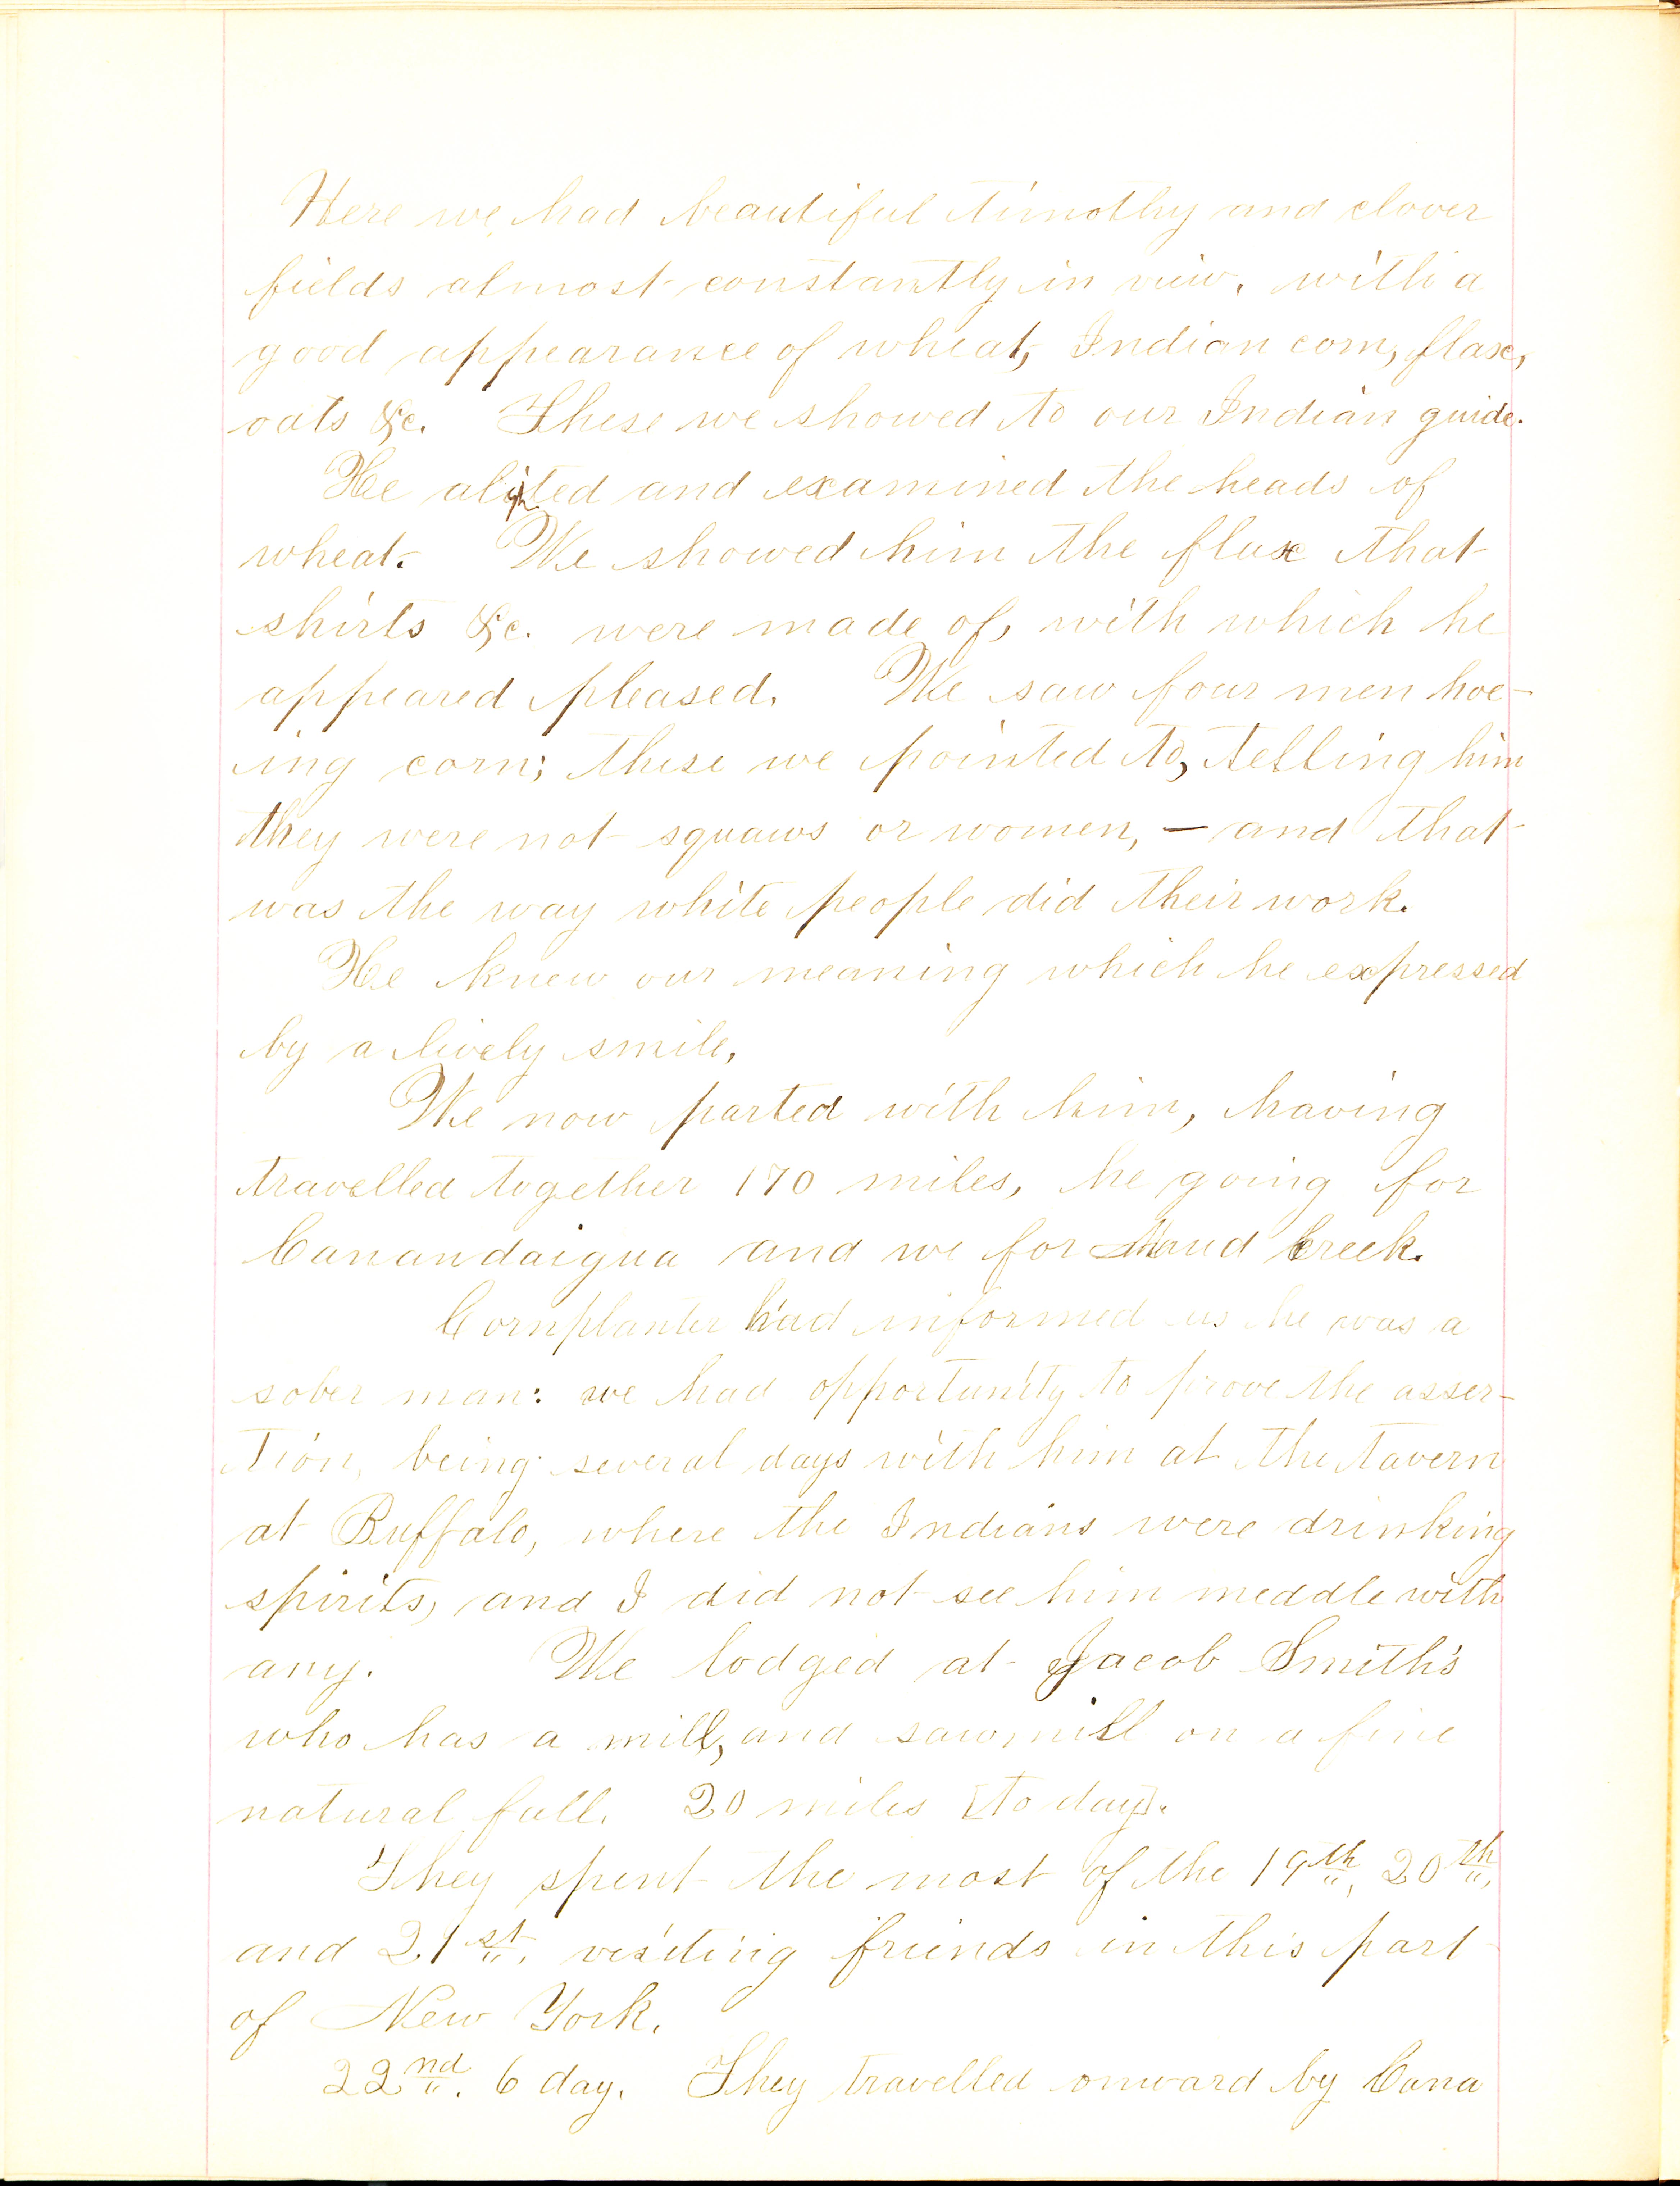 Here we had beautiful timothy and clover
fields almost constantly in view, with a
good appearance of wheat, Indian corn, flax,
oats &c. These we showed to our Indian guide.
He alighted and examined the heads of
wheat. We showed him the flax that
shirts &c. were made of, with which he
appeared pleased. We saw four men hoe-
ing corn; these we pointed to, telling him
they were not squaws or women, — and that
was the way white people did their work.
He knew our meaning which he expressed
by a lively smile.
We now parted with him, having
travelled together 170 miles, he going for
Canandaigua and we for Mud Creek.
Cornplanter had informed us he was a
sober man: we had opportunity to prove the asser-
tion, being several days with him at the tavern
at Buffalo, where the Indians were drinking
spirits, and I did not see him meddle with
any. We lodged at Jacob Smith's
who has a mill, and sawmill on a fine
natural fall. 20 miles [to day].
They spent the most of the 19th, 20th,
and 21st, visiting friends in this part
of New York.
22nd. 6 day. They travelled onward by Cana